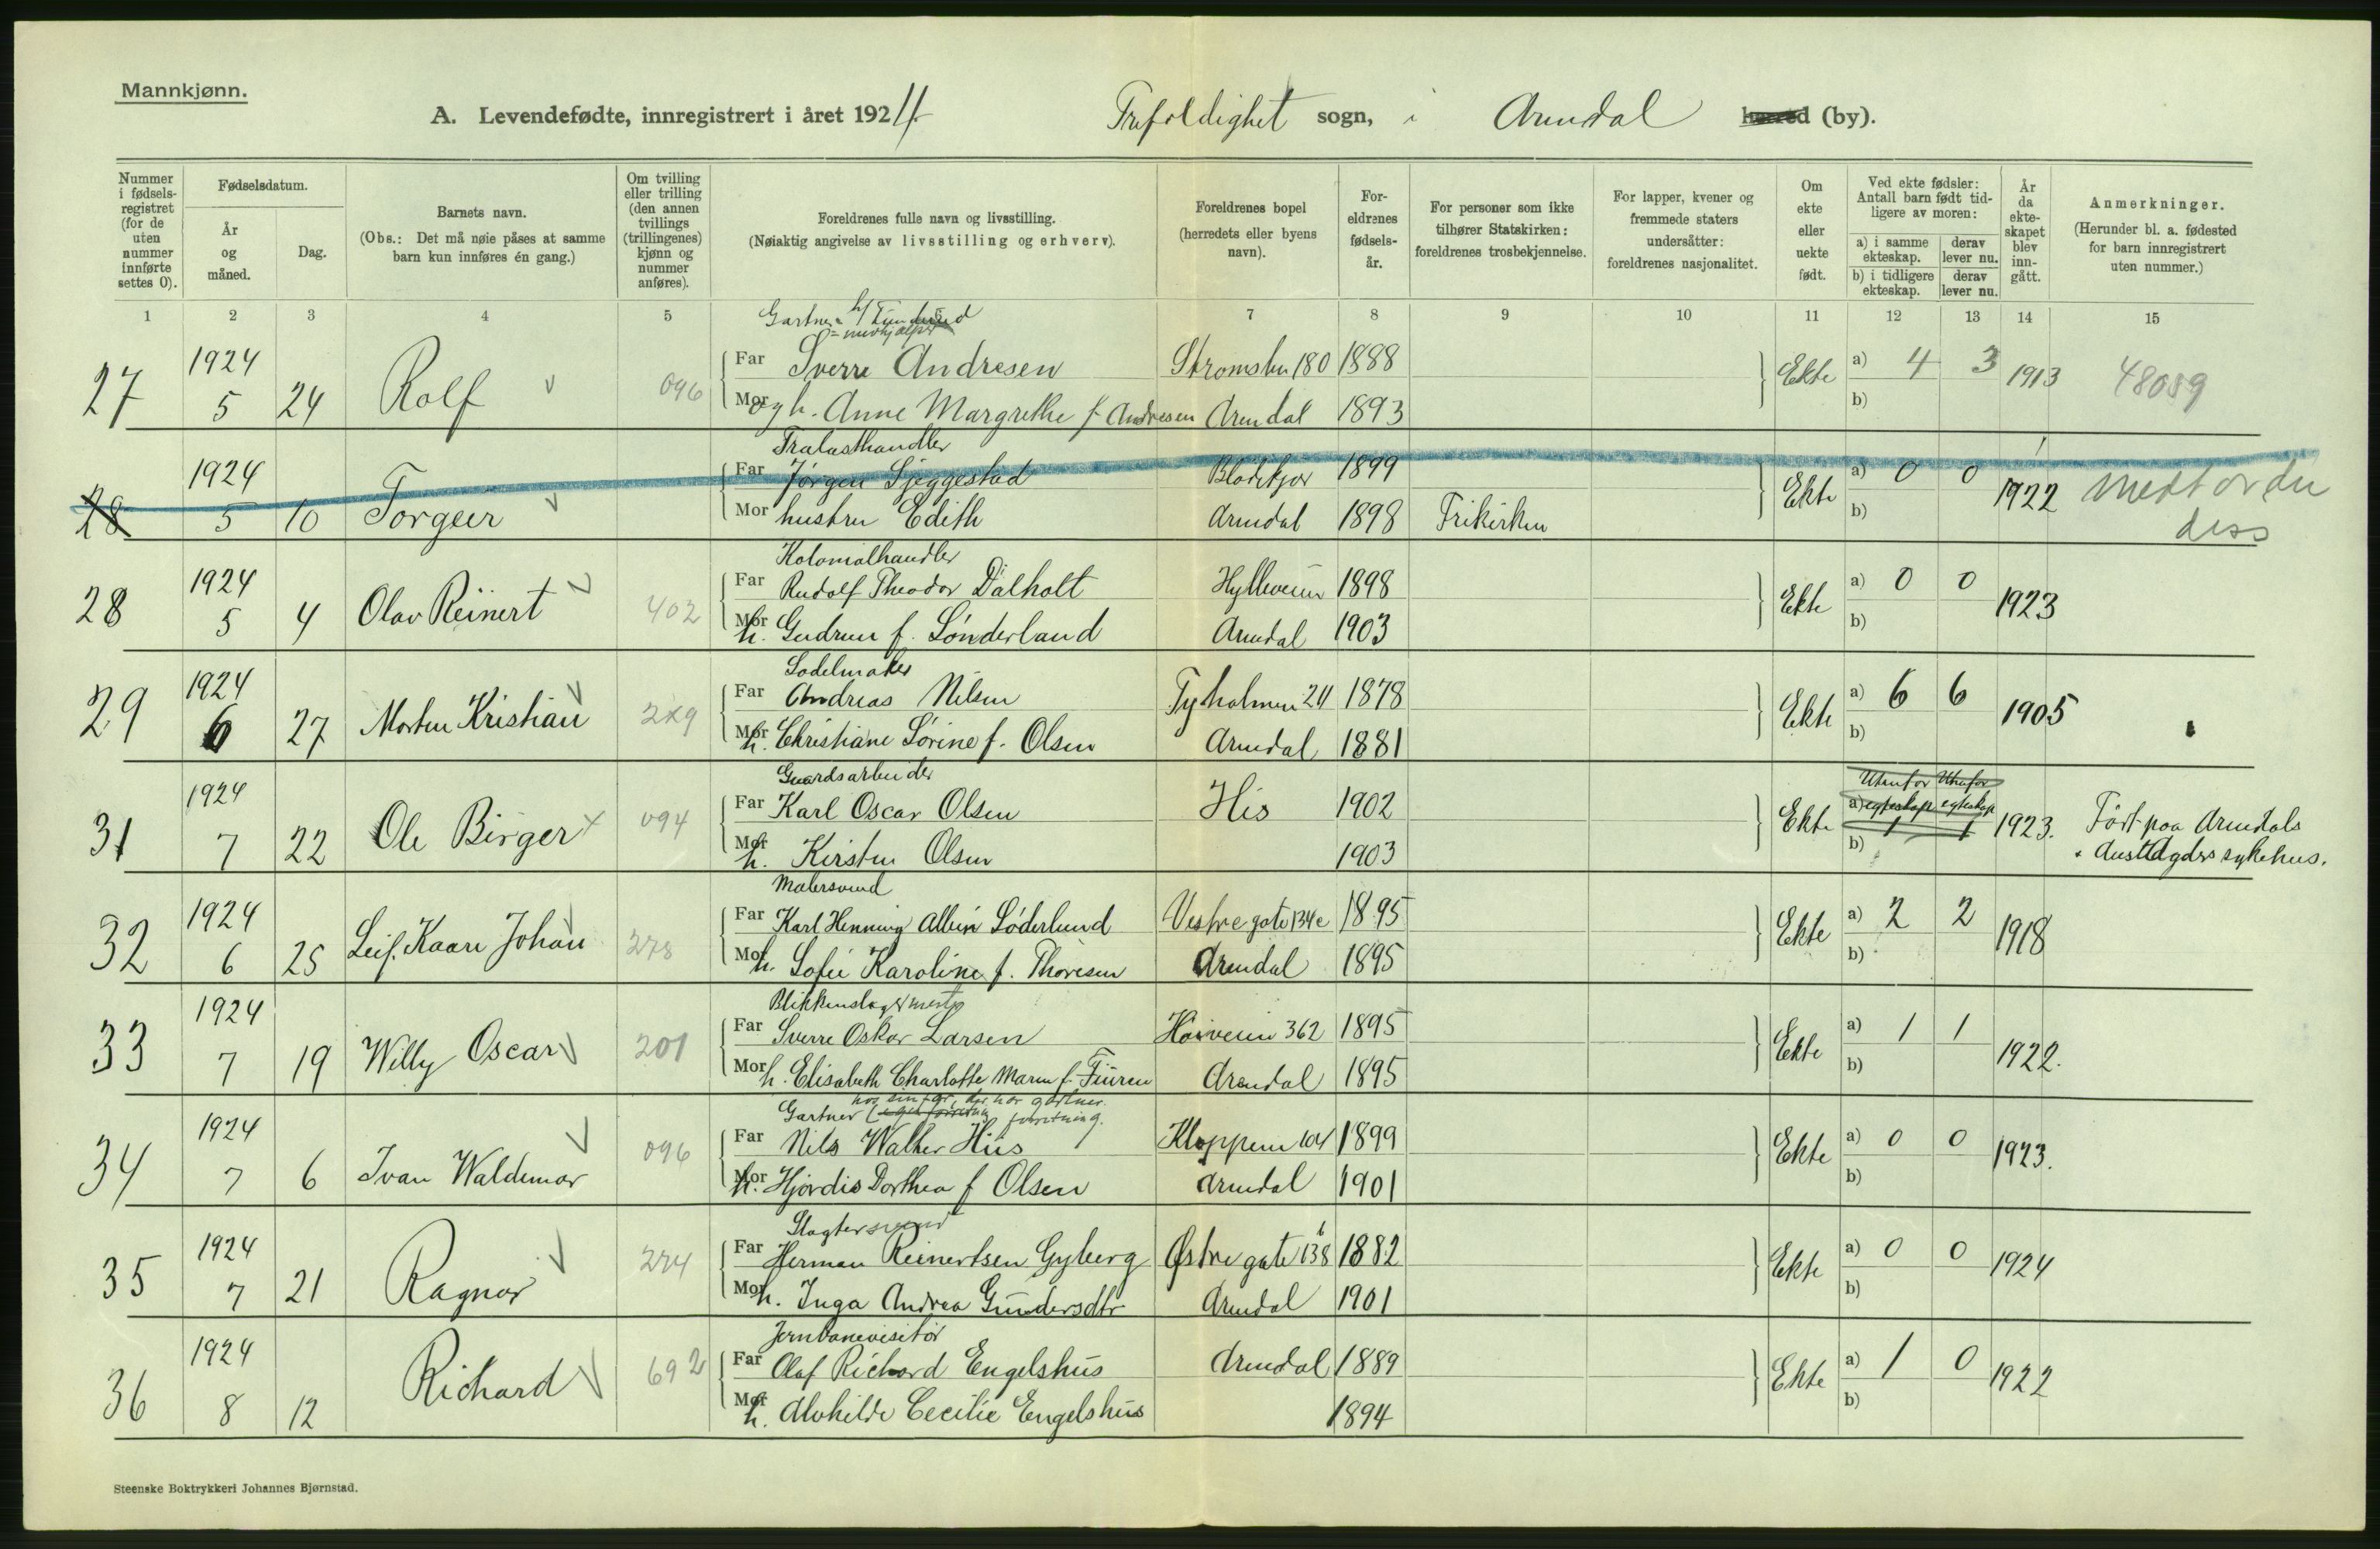 Mannkjønn.
A. Levendefødte, innregistrert i året 1924 Trefoldighet sogn, i Arendal herred (by).
Nummer i fødsels-registret (for de uten nummer innførte settes 0).
Fødselsdatum.
År og måned.
Dag.
Barnets navn.
(Obs.: Det må nøie påses at samme barn kun innføres én gang.)
Om tvilling eller trilling (den annen tvillings (trillingenes) kjønn og nummer anføres).
Foreldrenes fulle navn og livsstilling.
(Nøiaktig angivelse av livsstilling og erhverv).
Foreldrenes bopel (herredets eller byens navn).
For-eldrenes fødsels-år.
For personer som ikke tilhører Statskirken: foreldrenes trosbekjennelse.
For lapper, kvener og fremmede staters undersåtter: foreldrenes nasjonalitet.
Om ekte eller uekte født.
Ved ekte fødsler: Antall barn født tid-ligere av moren:
a) i samme ekteskap. derav lever nu.
b) i tidligere ekteskap. derav lever nu.
År da ekte-skapet blev inn-gått.
Anmerkninger.
(Herunder bl. a. fødested for barn innregistrert uten nummer.)
1 2 3 4 5 7 8 9 10 11 12 13 14 15
Gartner
27 1924 5 24 Rolf 096 Far Sverre Andresen Strømsbu 180 1888 Ekte a) 4 3 1913 48089
Mor og h. Anne Margrethe f. Andresen Arendal 1893 b)
Trælasthandler
28 1924 5 10 Torgeir Far Jørgen Sjeggestad Blødekjær 1899 Ekte a) 0 0 1922
Mor hustru Edith Arendal 1898 Frikirken b)
diss
Kolonialhandler
28 1924 5 4 Olav Reinert 402 Far Rudolf Theodor Dalholt Hylleveien 1898 Ekte a) 0 0 1923
Mor h. Gudrun f. Sønderland Arendal 1903 b)
Sadelmaker
29 1924 6 27 Morten Kristian Far Andreas Nilsen Tyholmen 24 1878 Ekte a) 6 6 1905
Mor h. Christiane Sørine f. Olsen Arendal 1881 b)
Gaardsarbeider
31 1924 7 22 Ole Birger 094 Far Karl Oscar Olsen His 1902 Ekte Utenfor Utenfor a) egteskap egteskap 1 1 1923. Født paa Arendals
Mor h. Kirsten Olsen 1903 b) . Austagders sykehus.
Malersvend
32 1924 6 25 Leif Kaare Johan 278 Far Karl Henning Albin Søderlund Vestre gate 134c 1895 Ekte a) 2 2 1918
Mor h. Sofie Karoline f. Thoresen Arendal 1895 b)
Blikkenslagermester
33 1924 7 19 Willy Oscar 201 Far Sverre Oskar Larsen Høiveien 362 1895 Ekte a) 1 1 1922.
Mor h. Elisabeth Charlotte Maren f. Fiüren Arendal 1895 b)
hos sin far, der har gartner
Gartner (egen forretning forretning.
34 1924 7 6 Ivan Waldemar 096 Far Nils Walther Hiis Kloppene 104 1899 Ekte a) 0 0 1923.
Mor h. Hjørdis Dorthea f Olsen Arendal 1901 b)
Slagtersvend
35 1924 7 21 Ragnar 274 Far Herman Reinertsen Gyberg Østre gate 138 b 1882 Ekte a) 0 0 1924
Mor h. Inga Andrea Gundersdtr Arendal 1901 b)
Jernbanevisitør
36 1924 8 12 Richard 692 Far Olaf Richard Engelshus Arendal 1889 Ekte a) 1 0 1922
Mor h. Alvhilde Cecilie Engelshus 1894 b)
Steenske Boktrykkeri Johannes Bjørnstad.